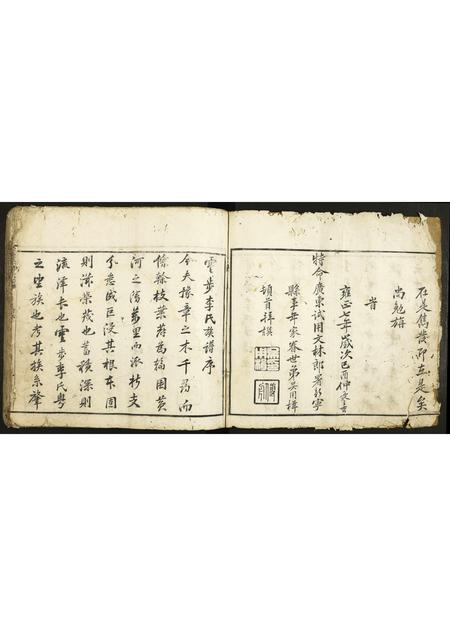 在是舊幾即在是矣
尚勉旃
旹
雍正七年歲次己酉仲冬吉
特令廣東試用文林郎署新寧
縣事年家眷世弟吳用楫
頓首拜撰
雲步李氏族譜序
今夫豫章之木千尋而
條繇枝葉蕃焉稿固黄
河之流萬里而派析支
分意盛巨浸其根本固
則滋榮茂也蓄積深則
流澤長也雲步李氏粵
之望族也考其族系肇